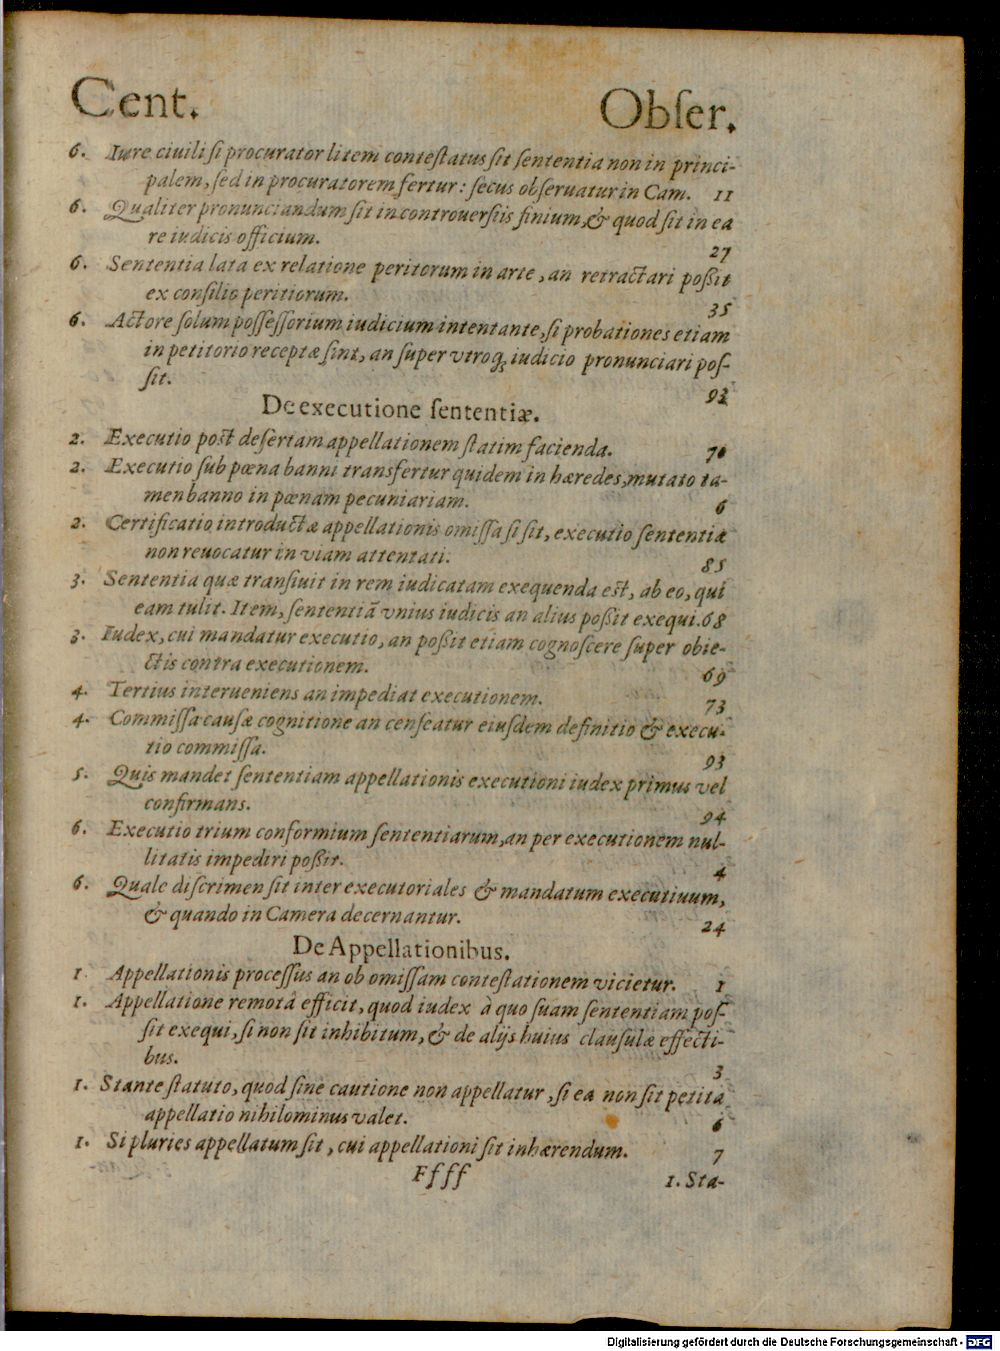 Cent. Obſer.
6. Iure ciuili ſi procurator litem conteſtatus ſit ſententia non in princi-
palem, ſed in procuratorem fertur: ſecus obſeruatur in Cam. 11
6. Qualiter pronunciandum ſit in controuerſiis finium, & quod ſit in ea
re iudicis officium. 27
6. Sententia lata ex relatione peritorum in arte, an retractari poßit
ex conſilio peritiorum. 35
6. Actore ſolum poſſeſſorium iudicium intentante, ſi probationes etiam
in petitorio receptæ ſint, an ſuper vtroq; iudicio pronunciari poſ-
ſit. 92
De executione ſententiæ.
2. Executio poſt deſertam appellationem ſtatim facienda. 70
2. Executio ſub pœna banni transfertur quidem in hæredes, mutato ta-
men banno in pœnam pecuniariam. 6
2. Certificatio introductæ appellationis omiſſa ſi ſit, executio ſententiæ
non reuocatur in viam attentati. 85
3. Sententia quæ tranſiuit in rem iudicatam exequenda eſt, ab eo, qui
eam tulit. Item, ſententiā vnius iudicis an alius poßit exequi. 68
3. Iudex, cui mandatur executio, an poßit etiam cognoſcere ſuper obie-
ctis contra executionem. 69
4. Tertius interueniens an impediat executionem. 73
4. Commiſſa cauſæ cognitione an cenſeatur eiuſdem definitio & execu-
tio commiſſa. 93
5. Quis mandet ſententiam appellationis executioni iudex primus vel
confirmans. 94
6. Executio trium conformium ſententiarum, an per executionem nul-
litatis impediri poßit. 4
6. Quale diſcrimen ſit inter executoriales & mandatum executiuum,
& quando in Camera decernantur. 24
De Appellationibus.
1. Appellationis proceſſus an ob omiſſam conteſtationem vicietur. 1
1. Appellatione remotâ efficit, quod iudex à quo ſuam ſententiam poſ-
ſit exequi, ſi non ſit inhibitum, & de alijs huius clauſulæ effecti-
bus. 3
1. Stante ſtatuto, quod ſine cautione non appellatur, ſi ea non ſit petita
appellatio nihilominus valet. 6
1. Si pluries appellatum ſit, cui appellationi ſit inhærendum. 7
Ffff 1. Sta-
Digitalisierung gefördert durch die Deutsche Forschungsgemeinschaft - DFG